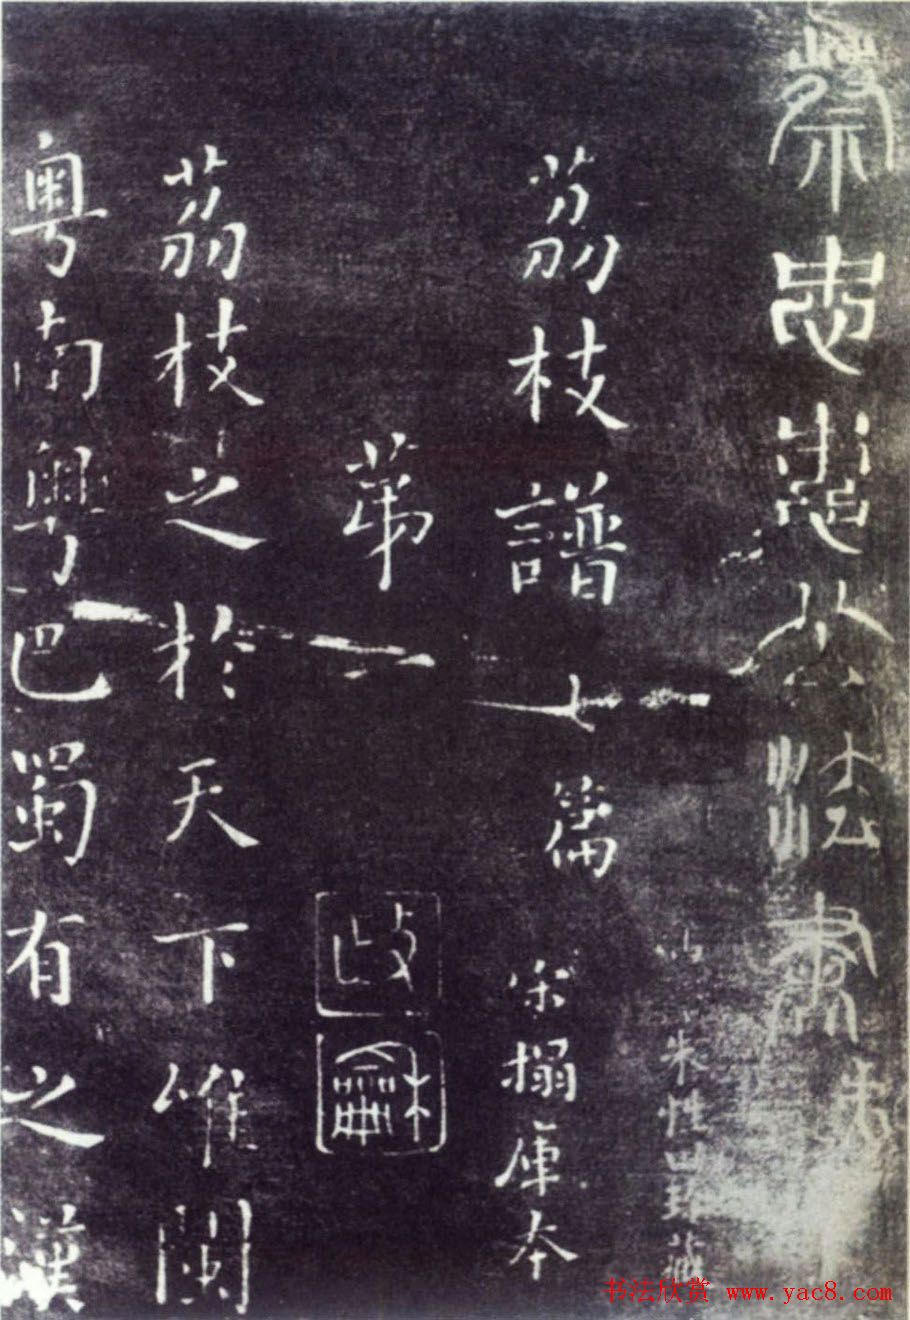 蔡忠惠公法書
荔枝譜七篇
宋搨庫本
第一
政
龢
荔枝之於天下唯閩
粵南粵巴蜀有之漢
书法欣赏 www.yac8.com